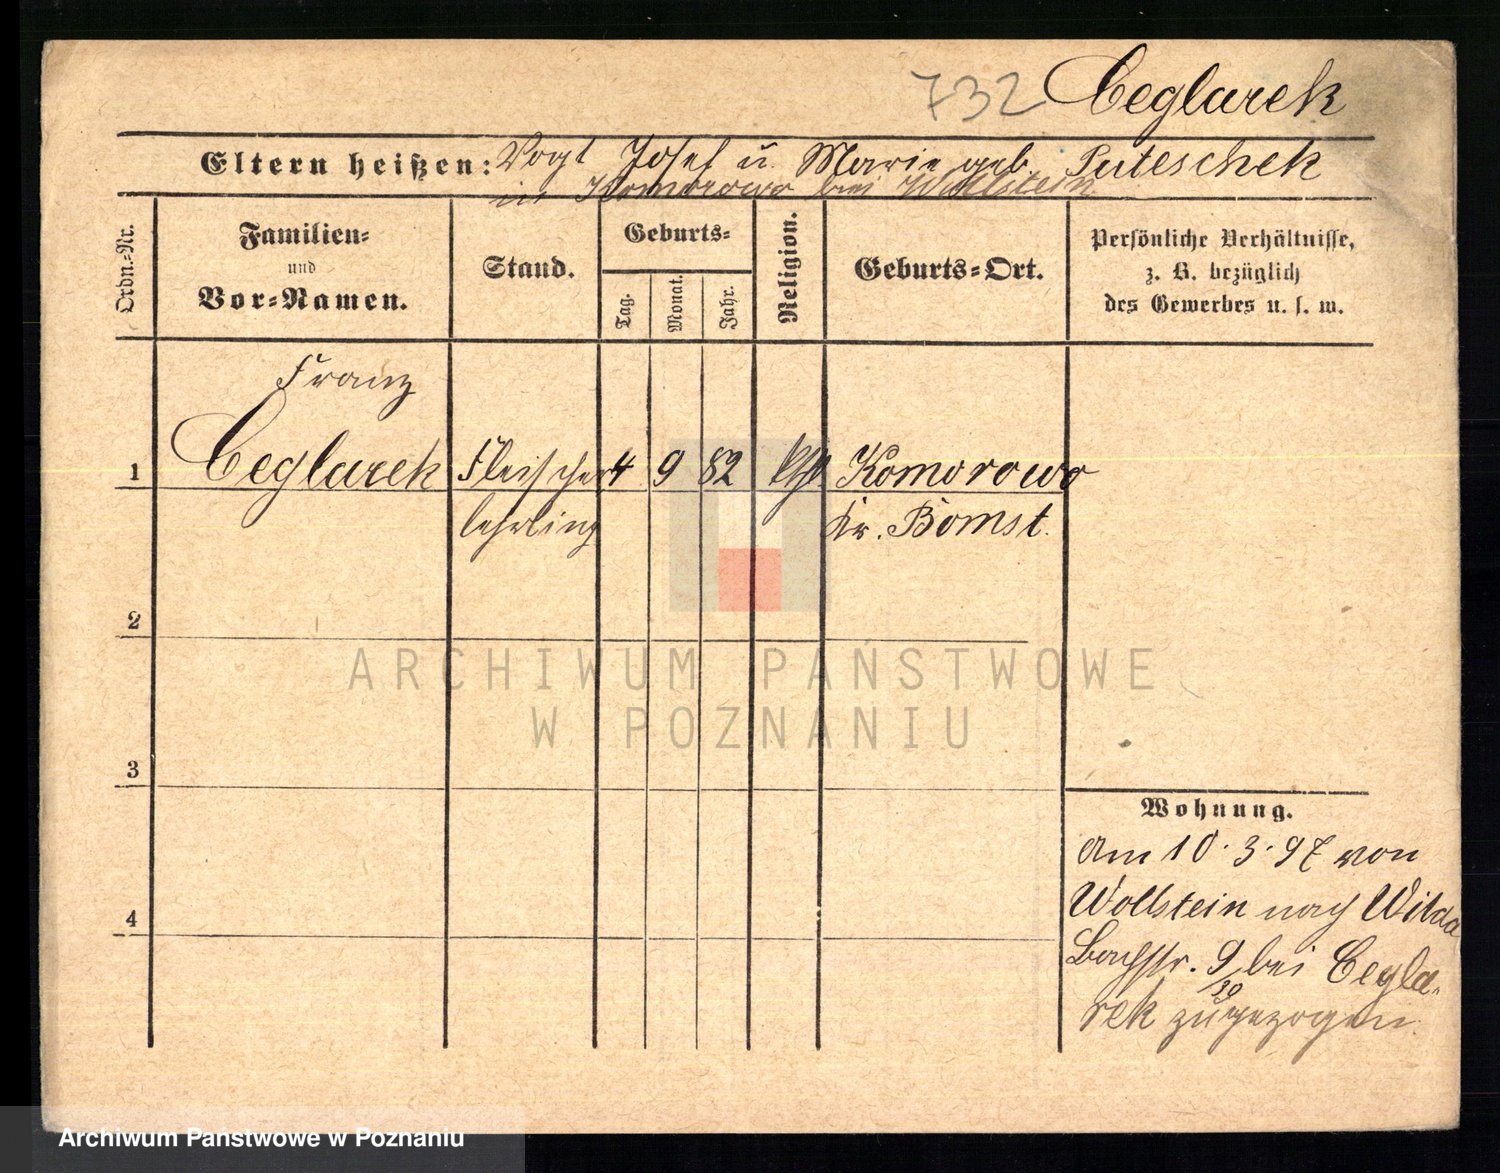 732 Ceglarek
Eltern heißen: Vogt Josef u. Marie geb. Puteschek
in Komorowo bei Wollstein
Ordn.-Nr.
Familien-
und
Vor-Namen.
Stand.
Geburts-
Tag.
Monat.
Jahr.
Religion.
Geburts-Ort.
Persönliche Verhältnisse,
z. B. bezüglich
des Gewerbes u. s. w.
Franz
1 Ceglarek Fleischer 4 9 82 kth. Komorowo
lehrling Kr. Bomst.
2
ARCHIWUM PAŃSTWOWE
W POZNANIU
3
Wohnung.
Am 10.3.97 von
Wollstein nach Wilda
Bachstr. 9/30 bei Cegla-
rek zugezogen.
4
Archiwum Państwowe w Poznaniu